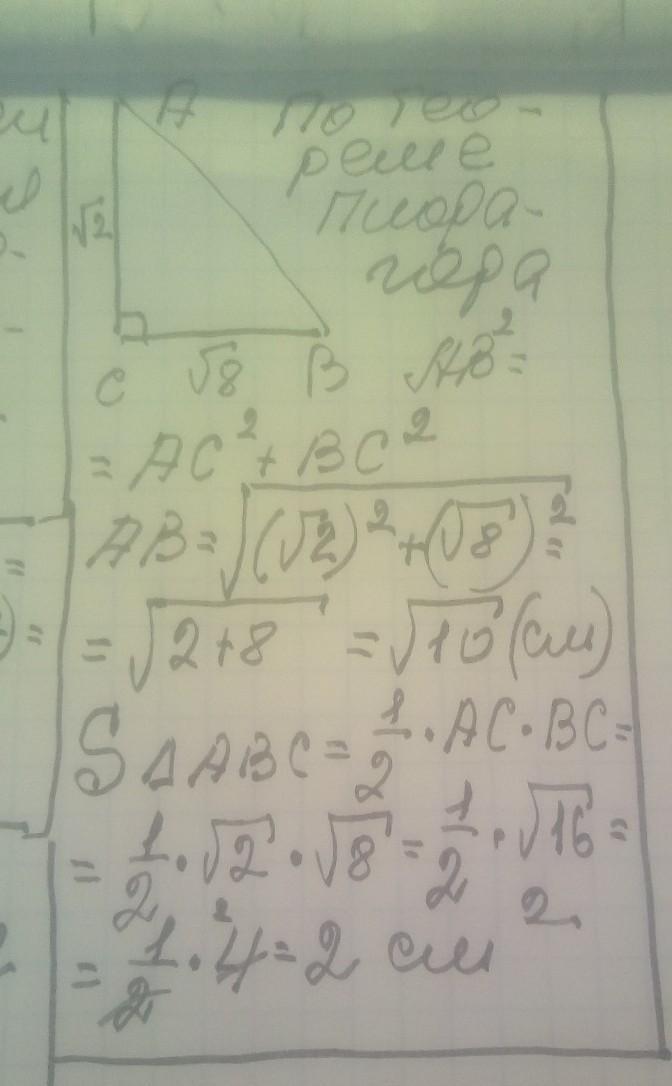 A По тео-
реме
√2 пифа-
гора
C √8 B AB²=
= AC² + BC²
AB=√(√2)²+(√8)²=
=√2+8 =√10 (см)
S∆ABC = 1/2 · AC · BC=
= 1/2 · √2 · √8 = 1/2 · √16 =
= 1/2 · 4 = 2 см²